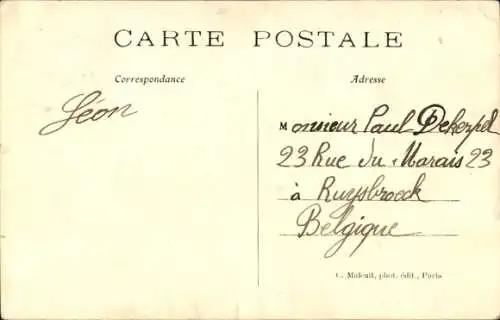 CARTE POSTALE
Correspondance
Adresse
Léon
Monsieur Paul Dekerpel
23 Rue du Marais 23
à Ruysbroeck
Belgique
C. Malcuit, phot. édit., Paris